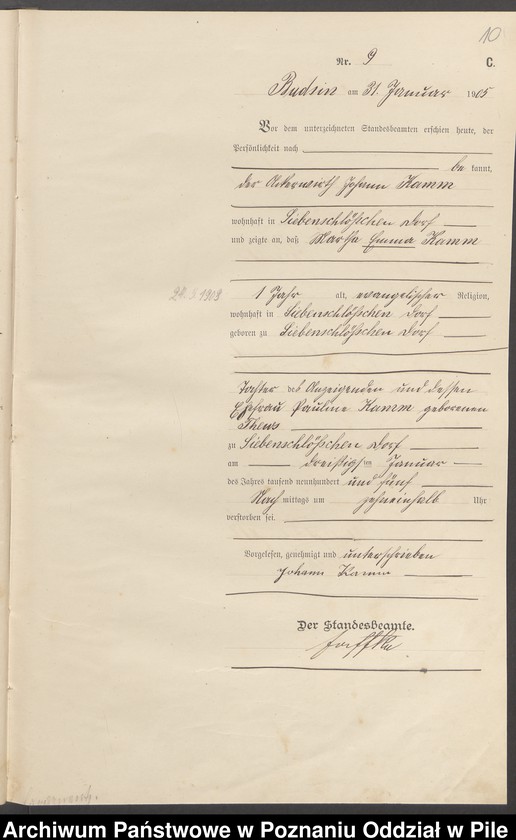 10
Nr. 9 C.
Budsin am 31. Januar 1905
Vor dem unterzeichneten Standesbeamten erschien heute, der
Persönlichkeit nach
be kannt,
der Ackerwirth Johann Kamm
wohnhaft in Siebenschlößchen Dorf
und zeigte an, daß Martha Emma Kamm
1 Jahr alt, evangelischer Religion,
wohnhaft in Siebenschlößchen Dorf
geboren zu Siebenschlößchen Dorf
Tochter des Anzeigenden und dessen
Ehefrau Pauline Kamm geborenen
Thews
zu Siebenschlößchen Dorf
am dreißigsten Januar
des Jahres tausend neunhundert und fünf
Nach mittags um zehneinhalb Uhr
verstorben sei.
Vorgelesen, genehmigt und unterschrieben
Johann Kamm
Der Standesbeamte.
Archiwum Państwowe w Poznaniu Oddział w Pile